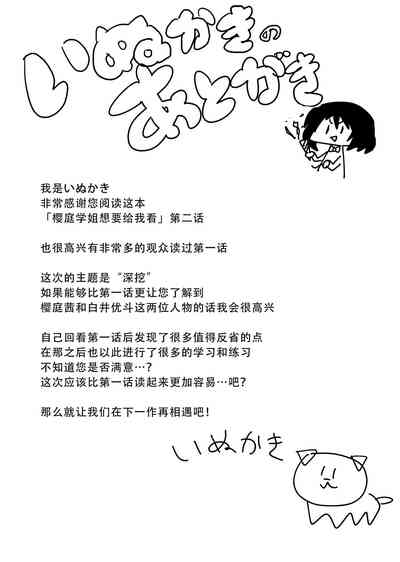 いぬかきの
あとがき
我是いぬかき
非常感谢您阅读这本
「樱庭学姐想要给我看」第二话
也很高兴有非常多的观众读过第一话
这次的主题是“深挖”
如果能够比第一话更让您了解到
樱庭茜和白井优斗这两位人物的话我会很高兴
自己回看第一话后发现了很多值得反省的点
在那之后也以此进行了很多的学习和练习
不知道您是否满意…?
这次应该比第一话读起来更加容易…吧?
那么就让我们在下一作再相遇吧!
いぬかき